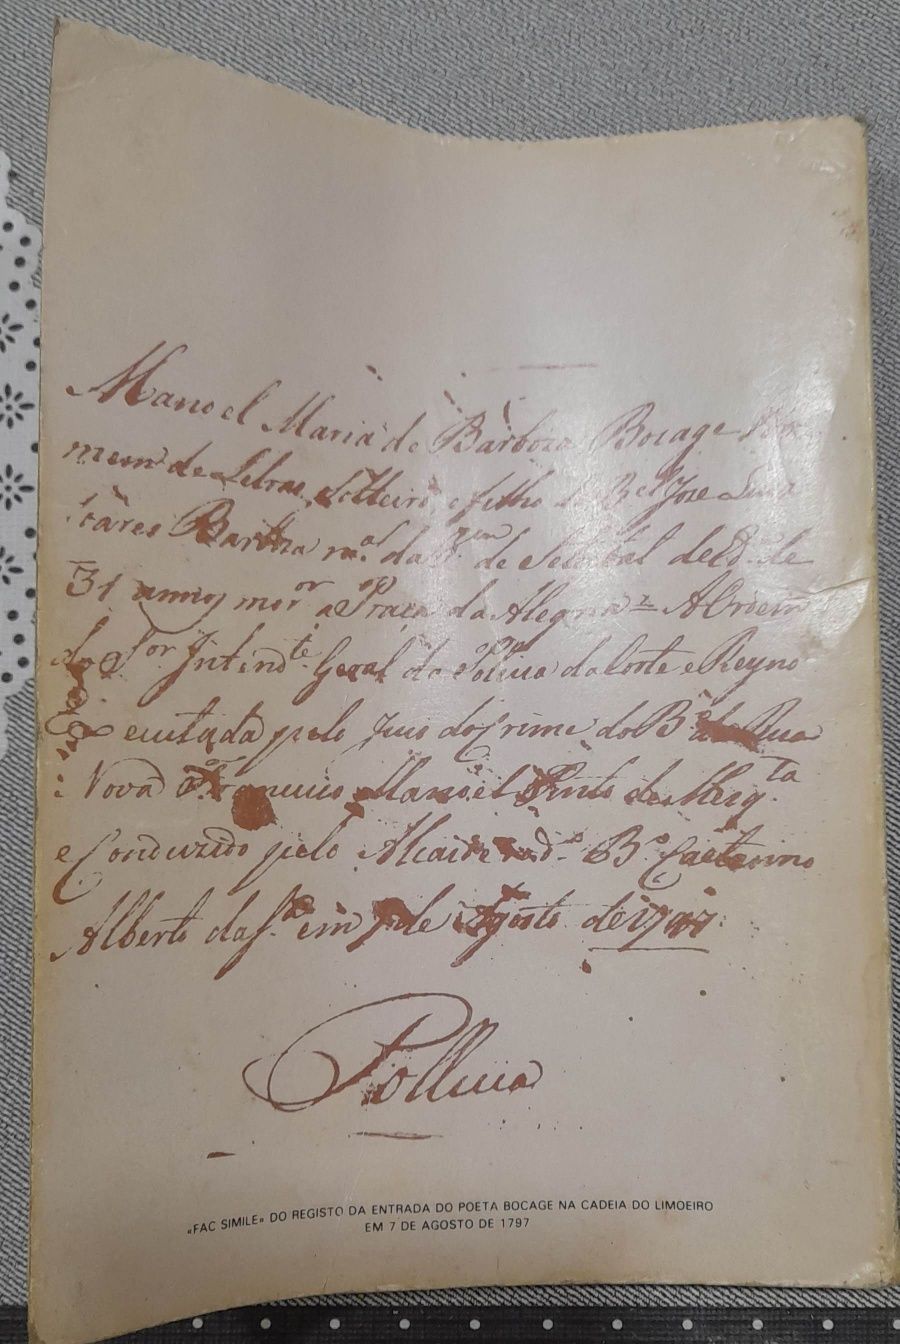 Manoel Maria de Barboza Bocage Ho
mem de Letras Solteiro e filho do Bel Joze Luis
Soares Barboza nal da Va de Setubal de Ide de
31 annos mor or a Praça da Alegria = A Ordem
do Sor Intendte Geral da Policia da Corte e Reyno
executada pelo Juis do Crime do Bo da Rua
Nova Francisco Manoel Pinto de Mesqta
e Conduzido pelo Alcaide do do Bo Caetano
Alberto da Sa em 7 de Agosto de 1797
Policia
«FAC SIMILE» DO REGISTO DA ENTRADA DO POETA BOCAGE NA CADEIA DO LIMOEIRO
EM 7 DE AGOSTO DE 1797